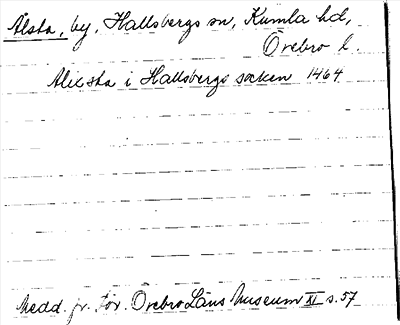 Ålsta, by, Hallsbergs sn, Kumla hd,
Örebro l.
Alixsta i Hallsbergs socken 1464
Medd. fr. För. Örebro Läns Museum XI s. 57